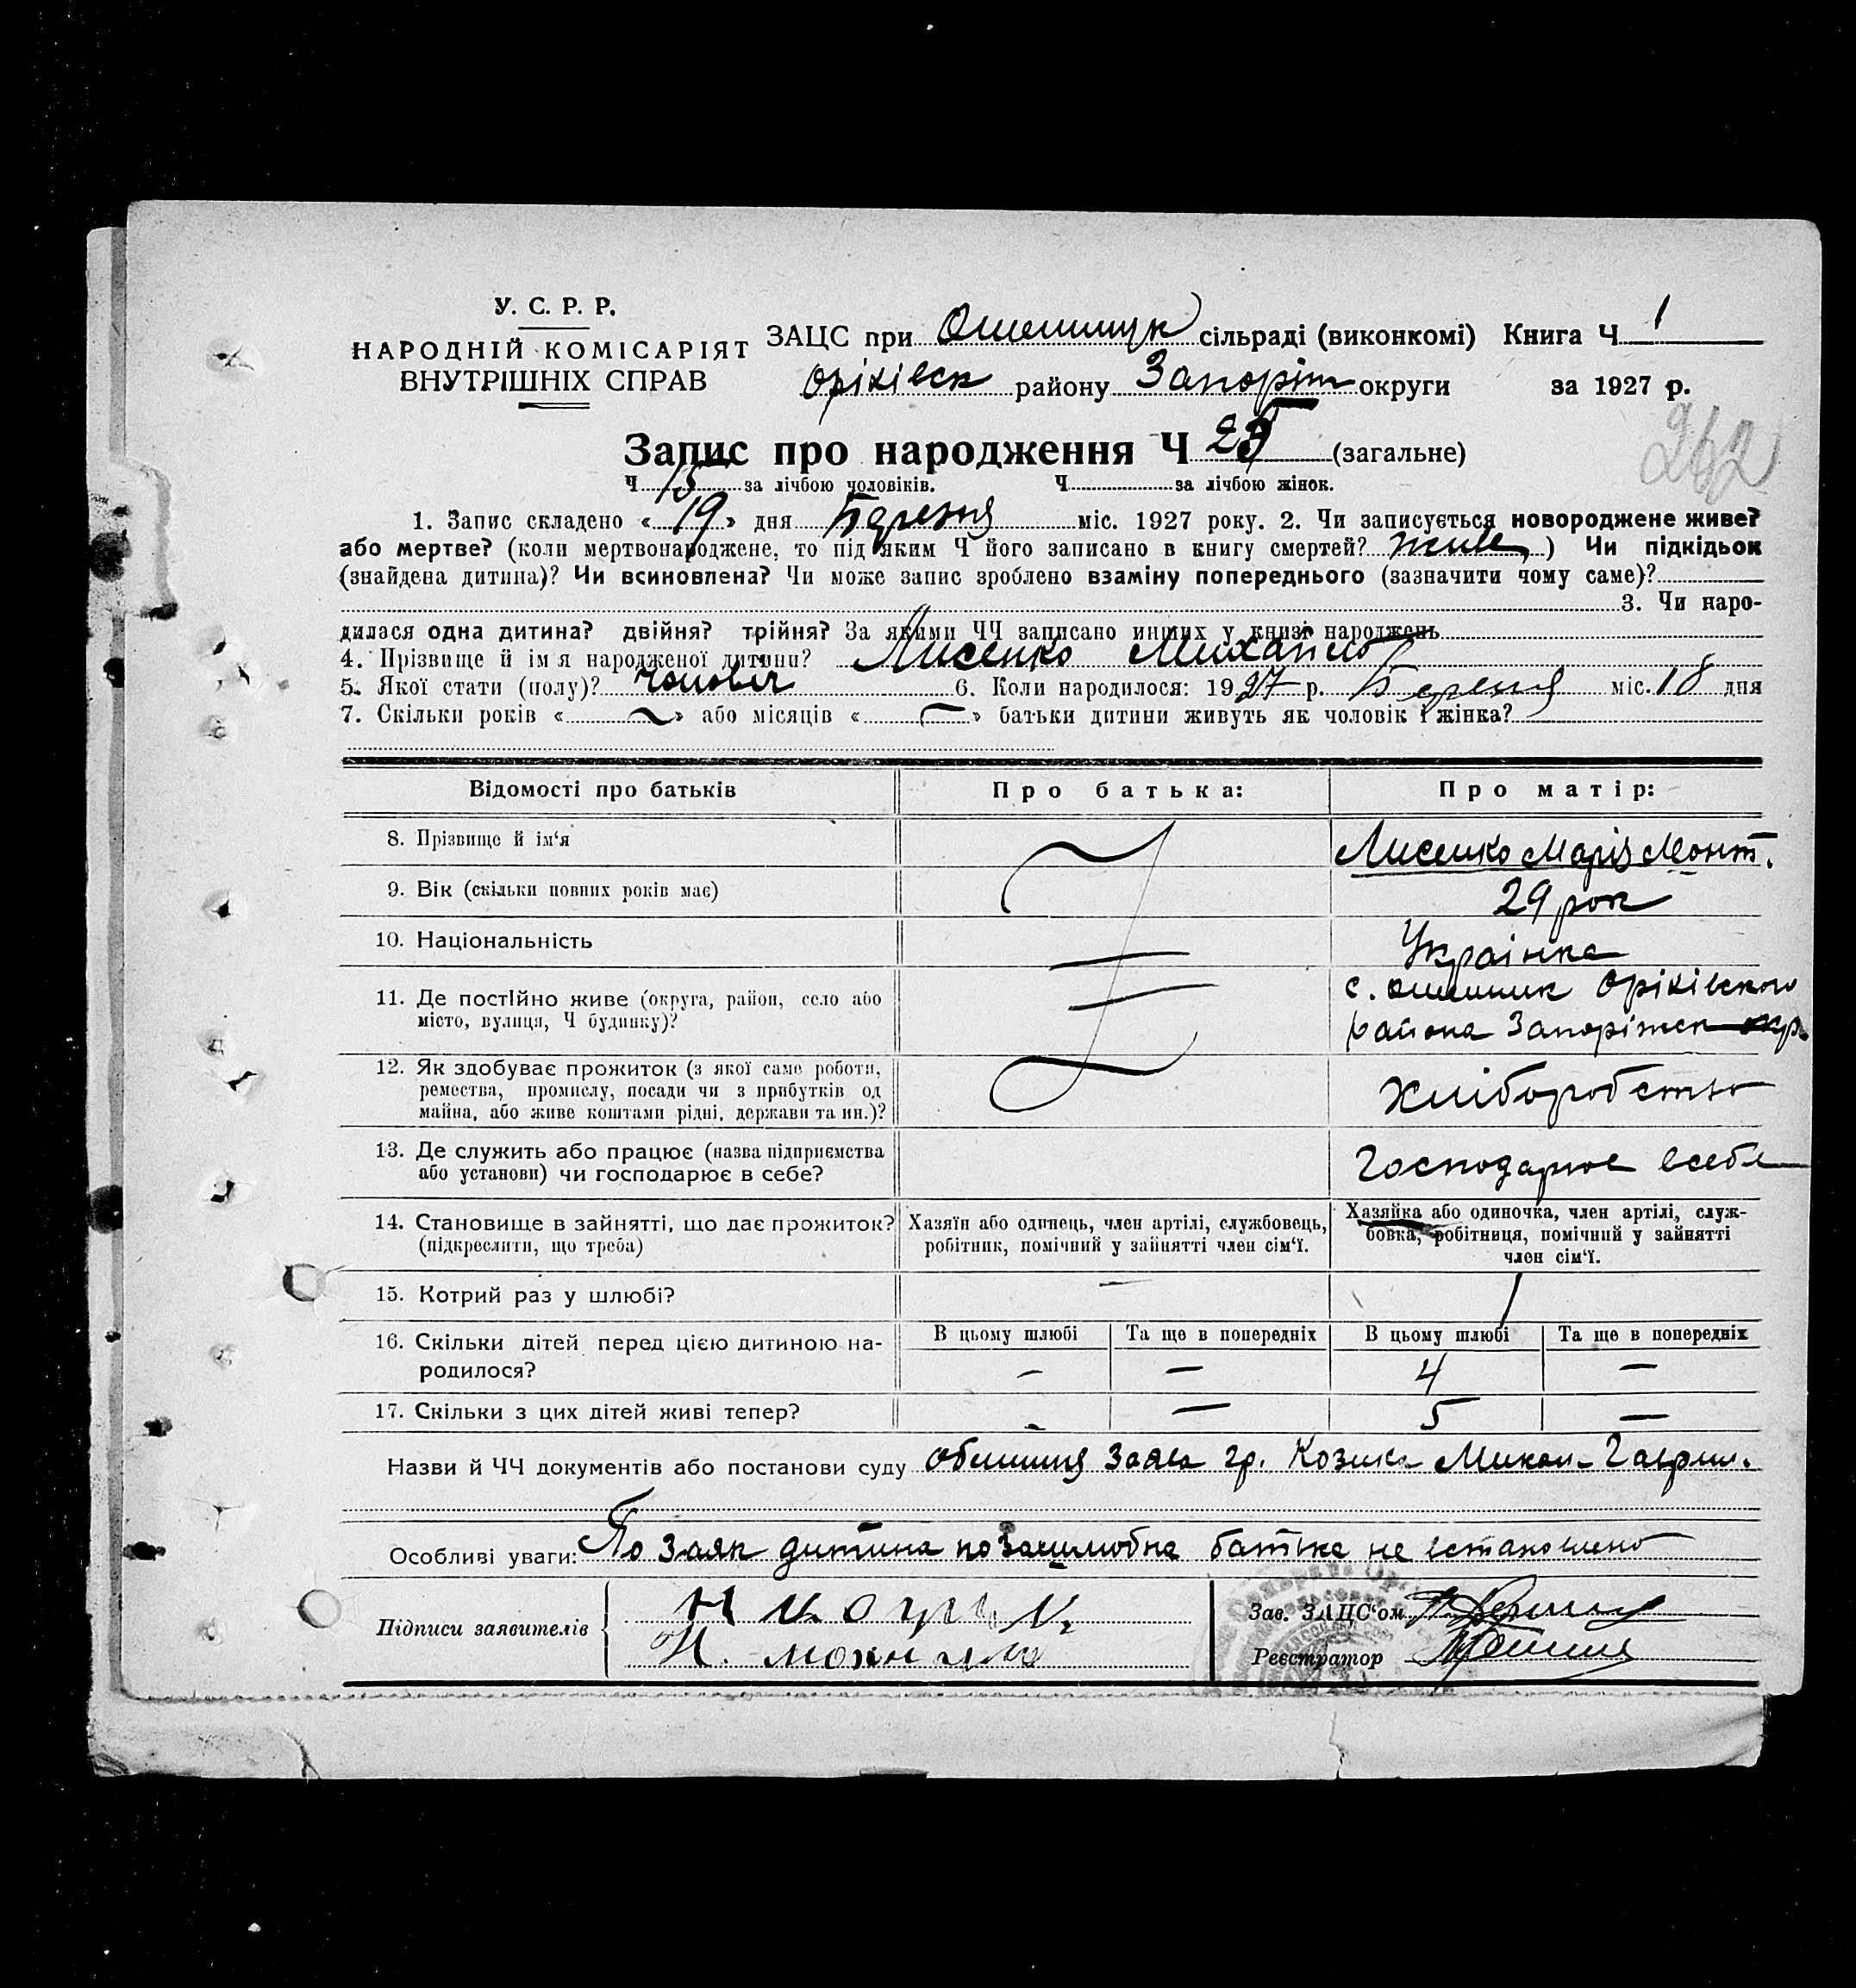 У. С. Р. Р.
НАРОДНІЙ КОМІСАРІЯТ
ВНУТРІШНІХ СПРАВ
ЗАЦС при сільраді (виконкомі) Книга Ч 1
Оріхівськ району Запоріж округи за 1927 р.
262
Запис про народження Ч 25 (загальне)
Ч 15 за лічбою чоловіків. Ч за лічбою жінок.
1. Запис складено «19» дня Березня міс. 1927 року. 2. Чи записується новороджене живе?
або мертве? (коли мертвонароджене, то під яким Ч його записано в книгу смертей? живе) Чи підкідьок
(знайдена дитина)? Чи всиновлена? Чи може запис зроблено взаміну попереднього (зазначити чому саме)?
3. Чи наро-
дилася одна дитина? двійня? трійня? За якими ЧЧ записано инших у книзі народжень
4. Прізвище й імя народженої дитини? Лисенко Михайло
5. Якої стати (полу)? чоловіч 6. Коли народилося: 1927 р. Березня міс. 18 дня
7. Скільки років « ~ » або місяців « ~ » батьки дитини живуть як чоловік і жінка?
Відомості про батьків Про батька: Про матір:
8. Прізвище й ім'я Лисенко Марія
9. Вік (скільки повних років має) 29 рок
10. Національність Українка
11. Де постійно живе (округа, район, село або
місто, вулиця, Ч будинку)?
с. Оріхівського
района Запоріжск окр.
12. Як здобуває прожиток (з якої саме роботи,
ремества, промислу, посади чи з прибутків од
майна, або живе коштами рідні, держави та ин.)?
Хліборобство
13. Де служить або працює (назва підприємства
або установи) чи господарює в себе?
Господарює всебе
14. Становище в зайнятті, що дає прожиток?
(підкреслити, що треба)
Хазяїн або одинець, член артілі, службовець,
робітник, помічний у зайнятті член сім'ї.
Хазяйка або одиночка, член артілі, служ-
бовка, робітниця, помічний у зайнятті
член сім'ї.
15. Котрий раз у шлюбі? — 1
16. Скільки дітей перед цією дитиною на-
родилося?
В цьому шлюбі Та ще в попередніх В цьому шлюбі Та ще в попередніх
— — 4 —
17. Скільки з цих дітей живі тепер? - — 5 —
Назви й ЧЧ документів або постанови суду заява гр. Микол. Гаврил.
Особливі уваги: По заяв дитина позашлюбна батька не встановлено
Підписи заявителів
Зав. ЗАЦС'ом
Реєстратор